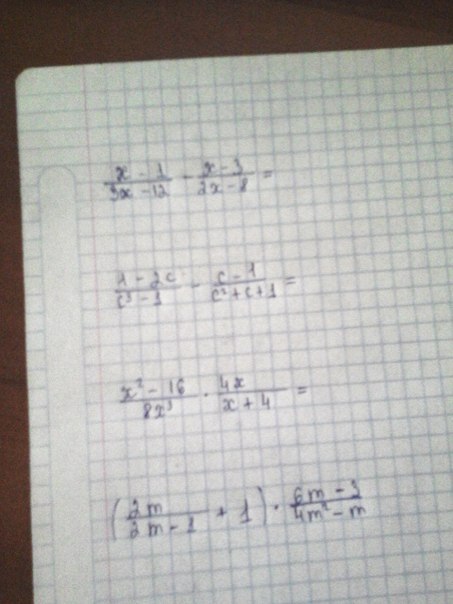 x - 1 / 3x - 12 - x - 3 / 2x - 8 =
1 - 2c / c³ - 1 - c - 1 / c² + c + 1 =
x² - 16 / 8x³ · 4x / x + 4 =
( 2m / 2m - 1 + 1 ) · 6m - 3 / 4m² - m